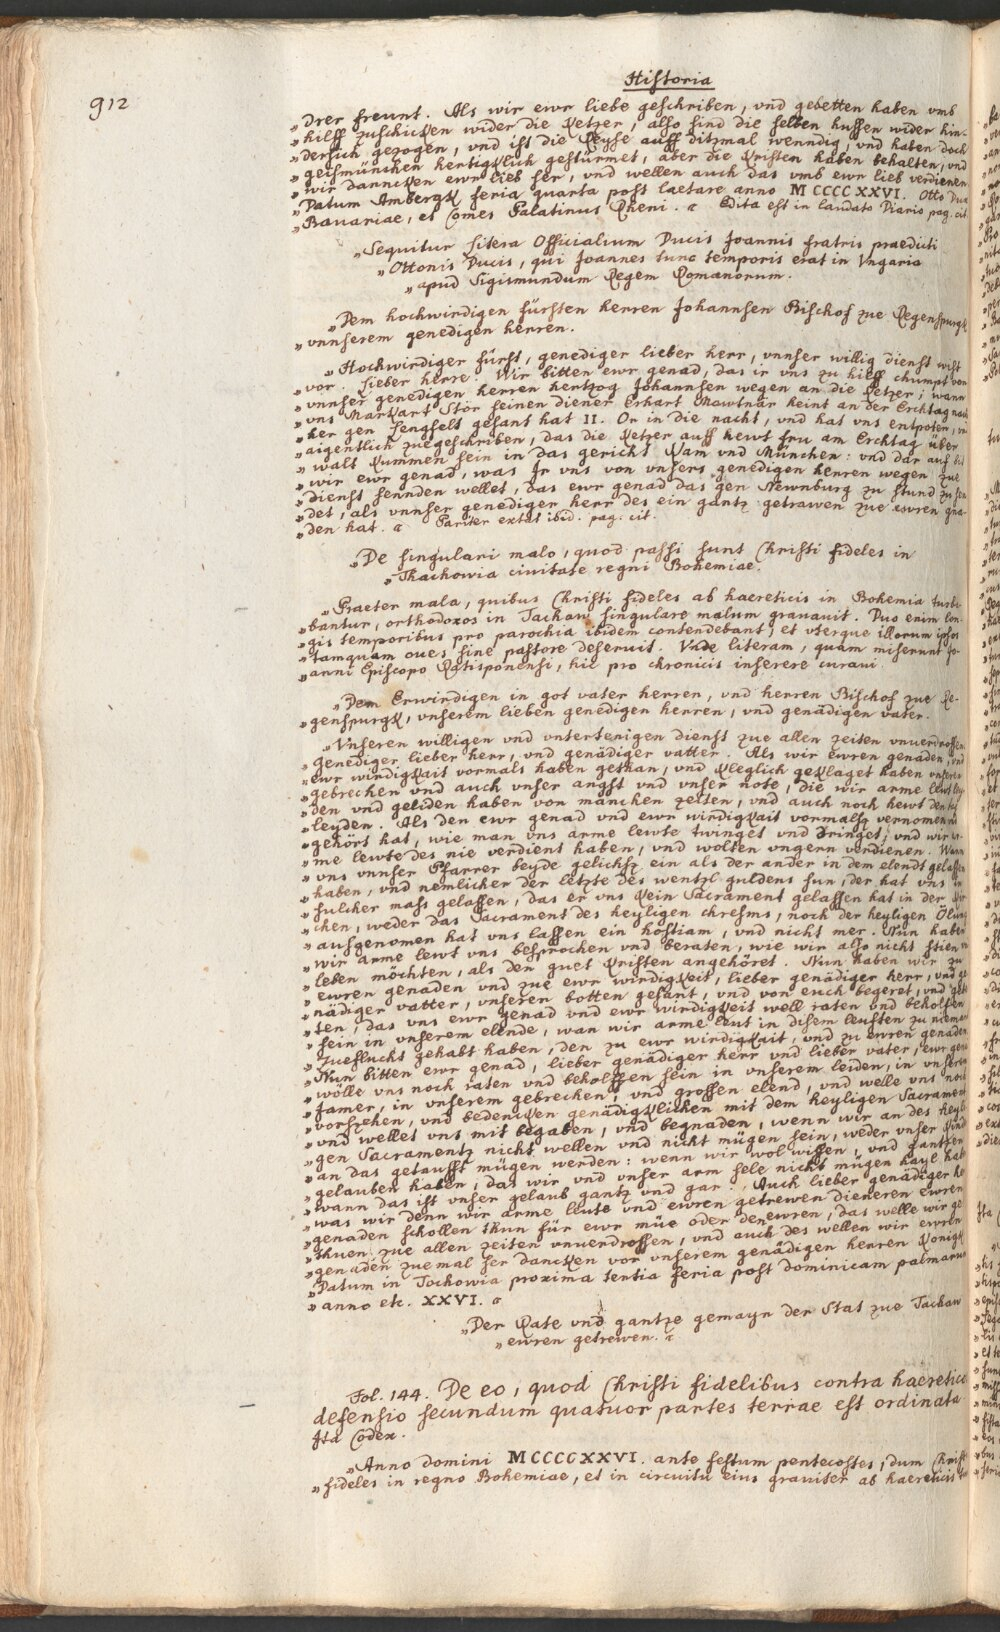 Historia
912
„drer freunt. Als wir ewr liebe geschriben, vnd gebetten haben vmb
„hilff zuschicken wider die Ketzer, also sind die selben hussen wider hin-
„dersich gezogen, vnd ist die Reyse auff ditzmal wenndig, vnd haben doch
„geissmünchen hertigklich gestürmet, aber die Kristen haben behalten, vnd
„wir dancken ewr lieb ser, vnd wellen auch das vmb ewr lieb verdienen
„Datum Ambergk feria quarta post laetare anno MCCCCXXVI. Otto Dux
„Bauariae, et Comes Palatinus Rheni. Edita est in laudato Diario pag. cit.
„Sequitur litera Officialium Ducis Joannis fratris praedicti
„Ottonis Ducis, qui Joannes tunc temporis erat in Vngaria
„apud Sigismundum Regem Romanorum.
„Dem hochwirdigen fürsten herren Johannsen Bischof zue Regenspurgk
„vnnserem genedigen herren.
„Hochwirdiger fürst, genediger lieber herr, vnnser willig dienst wist
„vor. Lieber herre. Wir bitten ewr genad, das ir vns zu hilff chumpt von
„vnnser genedigen herren hertzog Johannsen wegen an die Ketzer, wann
„vns Markart Stor seinen diener Erhart Mawtnar heint an der Erchtag nach
„her gen Lengfelt gesant hat II. Or in die nacht, vnd hat vns entpoten, vnd
„aigentlich zuegeschriben, das die Ketzer auff hewt fru am Erchtag über
„walt Kummen sein in das gericht Kam vnd München: vnd dar auf bit
„wir ewr genad, was Jr vns von vnsers genedigen herren wegen zue
„dienst sennden wellet, das ewr genad das gen Newnburg zu stund zu sen
„det, als vnnser genediger herr des ein gantz getrawen zue ewren gna-
„den hat. Pariter extat ibid. pag. cit.
„De singulari malo, quod passi sunt Christi fideles in
„Thachowia ciuitate regni Bohemiae.
„Praeter mala, quibus Christi fideles ab haereticis in Bohemia turba-
„bantur, orthodoxos in Tachaw singulare malum grauauit. Duo enim lon-
„gis temporibus pro parochia ibidem contendebant, et vterque illorum ipsos
„tamquam oues sine pastore deseruit. Vnde literam, quam miserunt Jo-
„anni Episcopo Ratisponensi, hic pro chronicis inserere curaui.
„Dem Erwirdigen in got vater herren, vnd herren Bischof zue Re-
„genspurgk, vnserem lieben genedigen herren, vnd genädigen vater.
„Vnseren willigen vnd vntertenigen dienst zue allen zeiten vnuerdrossen
„Genediger lieber herr, vnd genädiger vatter. Als wir ewren genaden, vnd
„ewr wirdigkait vormals haben gethan, vnd Kleglich geklaget haben vnseren
„gebrechen vnd auch vnser angst vnd vnser note, die wir arme lewt ley-
„den vnd geliden haben von manchen zeiten, vnd auch noch hewt den tag
„leyden. Als den ewr genad vnd ewr wirdigkait vormals vernomen vnd
„gehört hat, wie man vns arme lewte twinget vnd dringet, vnd wir ar-
„me lewte des nie verdient haben, vnd wolten vngern verdienen. Wann
„vns vnnser Pfarrer beyde gelichst ein als der ander in dem elendt gelassen
„haben, vnd nemlicher der letzte des wentzl guldens sun, der hat vns in
„sulcher mass gelassen, das er vns Kein Sacrament gelassen hat in der Kir-
„chen, weder das Sacrament des heyligen chresms, noch der heyligen Ölung
„ausgenomen hat vns lassen ein hostiam, vnd nicht mer. Nun haben
„wir arme lewt vns besprochen vnd beraten, wie wir also nicht
„leben möchten, als den guet Kristen angehöret. Nun haben wir zu
„ewren genaden vnd zue ewr wirdigkeit, lieber genädiger herr, vnd ge-
„nädiger vatter, vnseren botten gesant, vnd von euch begeret, vnd gebe-
„ten, das vns ewr genad vnd ewr wirdigkeit well raten vnd beholffen
„sein in vnserem elende, wan wir arme leut in disem leuften zu niemen
„zueflucht gehabt haben, den zu ewr wirdigkait, vnd zu ewren genaden
„Nun bitten ewr genad, lieber genädiger herr vnd lieber vater, ewr gena
„wölle vns noch raten vnd beholffen sein in vnserem leiden, in vnserem
„jamer, in vnserem gebrechen, vnd grossen elend, vnd welle vns noch
„vorsehen, vnd bedencken genädigklichen mit dem heyligen Sacrament
„vnd wellet vns mit begaben, vnd begnaden, wenn wir an des heyli-
„gen Sacramentz nicht wellen vnd nicht mügen sein, weder vnser Kind
„an das getaufft mügen werden: wenn wir wol wissen, vnd gantzen
„gelauben haben, das wir vnd vnser arm sele nicht mügen hayl haben
„wann das ist vnser gelaub gantz vnd gar. Auch lieber genädiger her
„was wir denn wir arme leute vnd ewren getrewen dieneren ewren
„genaden schollen thun für ewr müe oder den ewren, das welle wir ge
„thuen zue allen zeiten vnuerdrossen, vnd auch des wellen wir ewren
„genaden zuemal ser dancken vor vnserem genädigen herren Konigk
„Datum in Tochowia proxima tertia feria post dominicam palmarum
„anno etc. XXVI.
„Der Rate vnd gantze gemayn der Stat zue Tachaw
„ewren getrewen.
Fol. 144. De eo, quod Christi fidelibus contra haereticos
defensio secundum quatuor partes terrae est ordinata
Jta Codex.
„Anno domini MCCCCXXVI. ante festum pentecostes, dum Christi
„fideles in regno Bohemiae, et in circuitu eius grauiter ab haereticis